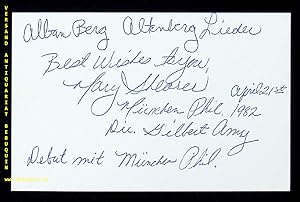 Alban Berg Altenberg Lieder
Best Wishes to you,
Mary Shearer
April 21st
München Phil. 1982
Dir. Gilbert Amy
Debut mit München Phil.
VERSAND ANTIQUARIAT DEBUQUIN